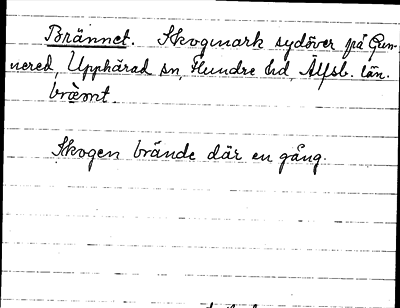 Brännet. Skogmark sydöver på Gun-
nered, Upphärad sn, Flundre hd, Älfsb. län.
bræ̀nt.
Skogen brände där en gång.